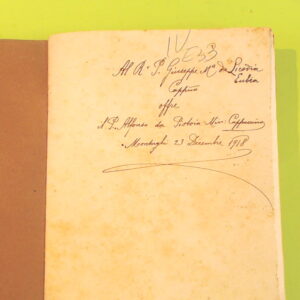 IV E53
Al R. P. Giuseppe Mª da Licodia
Eubea
Cappno
offre
Il P. Alfonso da Pistoia Min. Cappuccino
Montughi 23 Decembre 1918